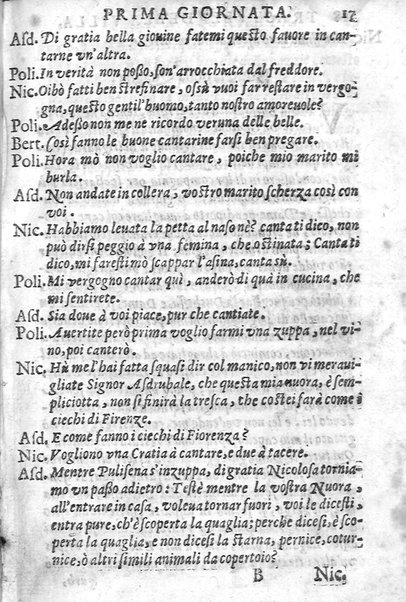 PRIMA GIORNATA. 17
Asd. Di gratia bella giouine fatemi questo fauore in can-
tarne vn'altra.
Poli. In verità non posso, son'arrocchiata dal freddore.
Nic. Oibò fatti ben strefinare, o sù vuoi far restare in vergo-
gna, questo gentil'huomo, tanto nostro amoreuole?
Poli. Adesso non me ne ricordo veruna delle belle.
Bert. Così fanno le buone cantarine farsi ben pregare.
Poli. Hora mò non voglio cantare, poiche mio marito mi
burla.
Asd. Non andate in collera, vostro marito scherza così con
voi.
Nic. Habbiamo leuata la petta al naso nè? canta ti dico, non
può dirsi peggio à vna femina, che ostinata: Canta ti
dico, mi faresti mò scappar l'asina, canta sù.
Poli. Mi vergogno cantar quì, anderò di quà in cucina, che
mi sentirete.
Asd. Sia doue à voi piace, pur che cantiate.
Poli. Auertite però prima voglio farmi vna zuppa, nel vi
no, poi canterò.
Nic. Hù me l'hai fatta squasi dir col manico, non vi meraui-
gliate Signor Asdrubale, che questa mia nuora, è sem-
pliciotta, non si finirà la tresca, che costei farà come i
ciechi di Firenze.
Asd. E come fanno i ciechi di Fiorenza?
Nic. Vogliono vna Cratia à cantare, e due à tacere.
Asd. Mentre Pulisena s'inzuppa, di gratia Nicolosa tornia-
mo un passo adietro: Testè mentre la vostra Nuora,
all'entrare in casa, voleua tornar fuori, voi le dicesti,
entra pure, ch'è scoperta la quaglia; perche dicesi, è sco-
perta la quaglia, e non dicesi la starna, pernice, cotur-
nice, ò altri simili animali da copertoio?
B Nic.